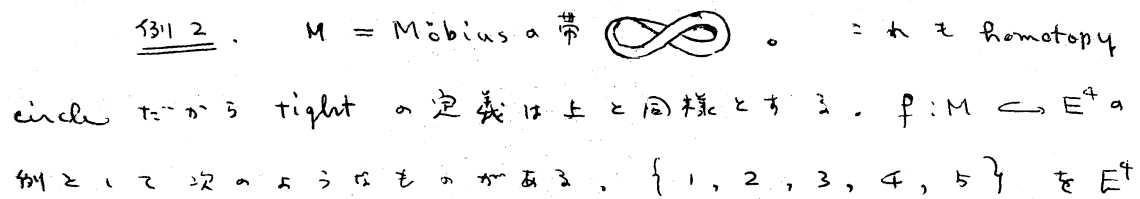 例2. M = Möbiusの帯 。 これも homotopy
circle だから tight の定義は上と同様とする. f : M ↪ E⁴ の
例として次のようなものがある. {1, 2, 3, 4, 5} を E⁴